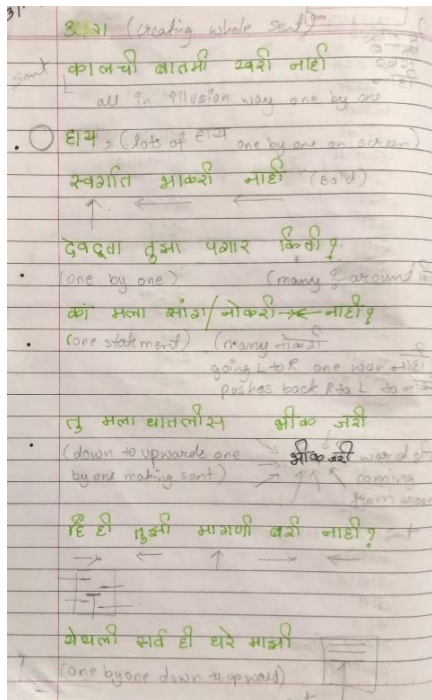 3. ग (creating whole sent)
sent कालची बातमी खरी नाही
all in illusion way one by one
हाय, (lots of हाय one by one on screen)
स्वर्गात भाकरी नाही (Bold)
देवदूता तुझा पगार किती?
(one by one) (many ? around
कां मला सांग/नोकरी नाही?
(one statement) (many नोकरी
going L to R one wor नाही
pushes back R to L to
तु मला घातलीस भीक जरी
(down to upwards one भीक जरी word
by one making sent) coming
from
हि ही तुझी मागणी बरी नाही?
येथली सर्व ही घरे माझी
(one by one down to upward)